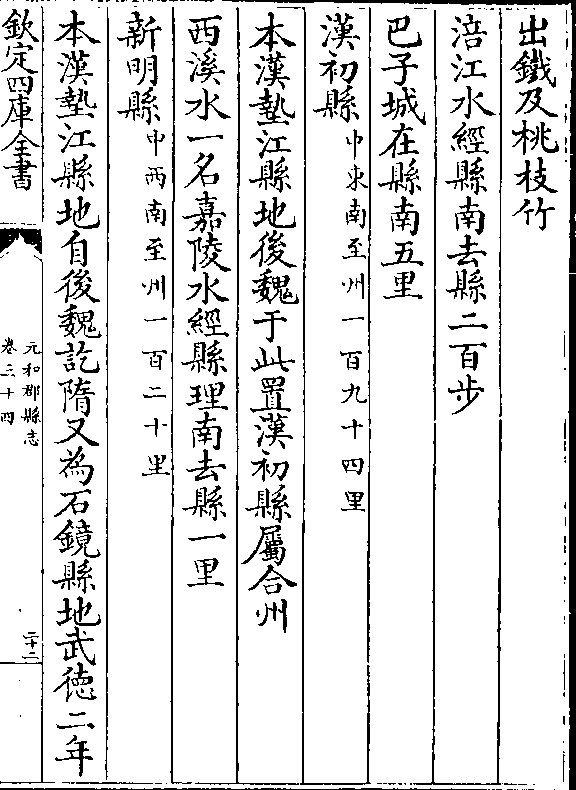 出鐵及桃枝竹
涪江水經縣南去縣二百步
巴子城在縣南五里
漢初縣中東南至州一百九十四里
本漢墊江縣地後魏于此置漢初縣屬合州
西溪水一名嘉陵水經縣理南去縣一里
新明縣中西南至州一百二十里
本漢墊江縣地自後魏訖隋又為石鏡縣地武徳二年
欽定四庫全書
元和郡縣志
卷三十四
二十二